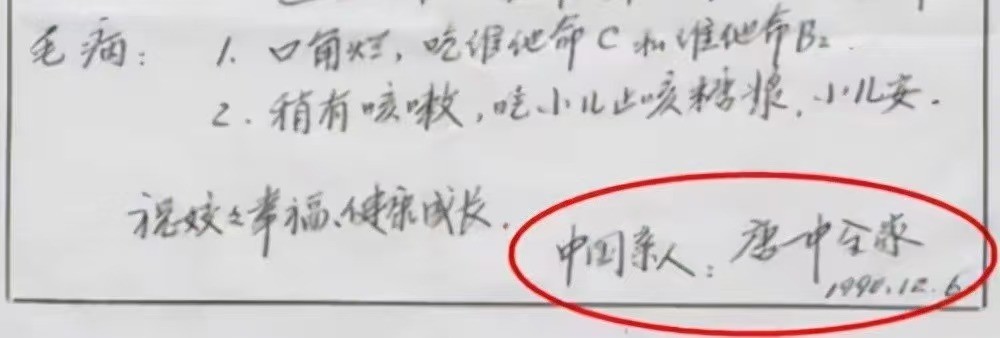 毛病：1. 口角烂，吃维他命C和维他命B₂.
2. 稍有咳嗽，吃小儿止咳糖浆，小儿安.
祝姣々幸福、健康成长.
中国亲人：唐中全家
1990.12.6